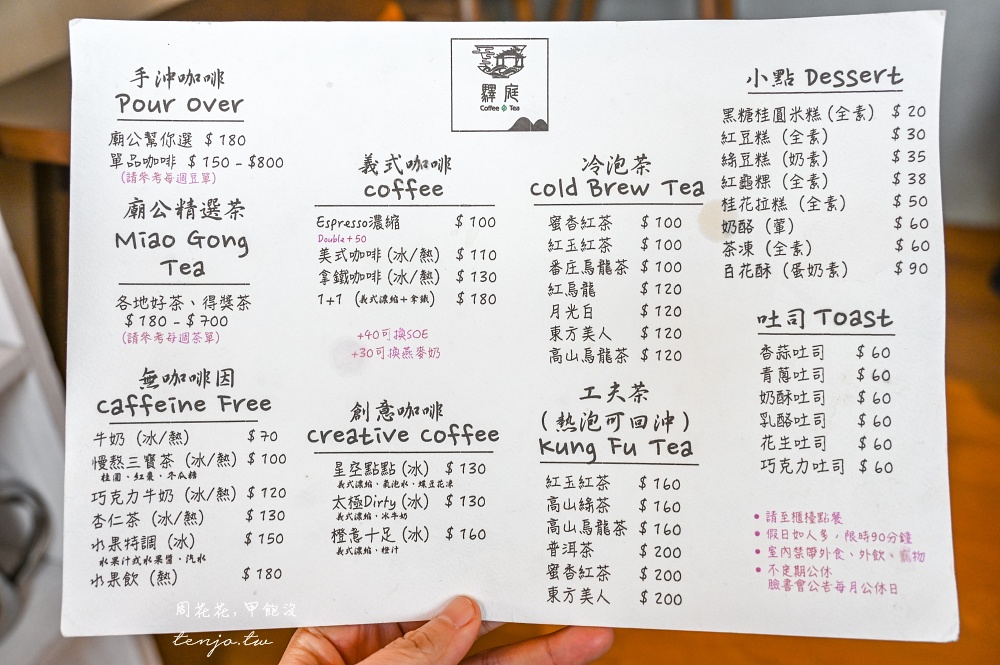 驛庭
Coffee Tea
手沖咖啡
Pour Over
廟公幫你選 $180
單品咖啡 $150-$800
(請參考每週豆單)
廟公精選茶
Miao Gong
Tea
各地好茶、得獎茶
$180-$700
(請參考每週茶單)
無咖啡因
Caffeine Free
牛奶 (冰/熱) $70
慢熬三寶茶 (冰/熱) $100
桂圓、紅棗、冬瓜糖
巧克力牛奶 (冰/熱) $120
杏仁茶 (冰/熱) $130
水果特調 (冰) $150
水果汁或水果醬、汽水
水果飲 (熱) $180
義式咖啡
coffee
Espresso濃縮 $100
Double+50
美式咖啡 (冰/熱) $110
拿鐵咖啡 (冰/熱) $130
1+1 (義式濃縮+拿鐵) $180
+40可換SOE
+30可換燕麥奶
創意咖啡
creative coffee
星空點點 (冰) $130
義式濃縮、氣泡水、蝶豆花凍
太極Dirty (冰) $130
義式濃縮、冰牛奶
橙意十足 (冰) $160
義式濃縮、橙汁
冷泡茶
Cold Brew Tea
蜜香紅茶 $100
紅玉紅茶 $100
番庄烏龍茶 $100
紅烏龍 $120
月光白 $120
東方美人 $120
高山烏龍茶 $120
工夫茶
(熱泡可回沖)
Kung Fu Tea
紅玉紅茶 $160
高山綠茶 $160
高山烏龍茶 $160
普洱茶 $200
蜜香紅茶 $200
東方美人 $200
小點 Dessert
黑糖桂圓米糕 (全素) $20
紅豆糕 (全素) $30
綠豆糕 (奶素) $35
紅龜粿 (全素) $38
桂花拉糕 (全素) $50
奶酪 (葷) $60
茶凍 (全素) $60
百花酥 (蛋奶素) $90
吐司 Toast
香蒜吐司 $60
青蔥吐司 $60
奶酥吐司 $60
乳酪吐司 $60
花生吐司 $60
巧克力吐司 $60
• 請至櫃檯點餐
• 假日如人多，限時90分鐘
• 室內禁帶外食、外飲、寵物
• 不定期公休
臉書會公告每月公休日
周花花，甲飽沒
tenjo.tw